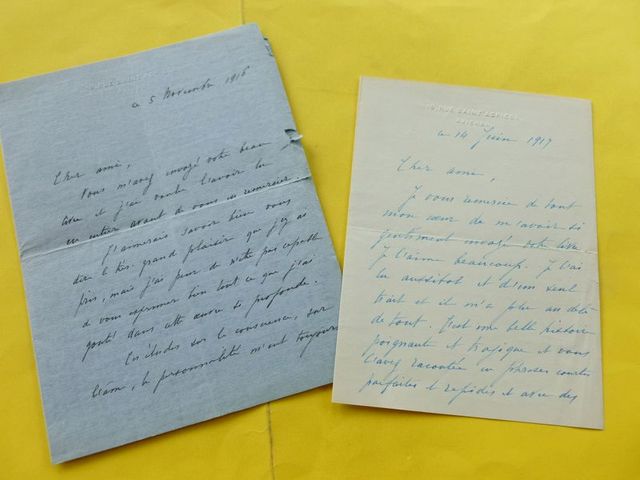 ce 5 Novembre 1916
Cher ami,
Vous m'avez envoyé votre beau
livre et j'ai voulu l'avoir lu
en entier avant de vous en remercier.
J'aimerais savoir bien vous
dire le très grand plaisir que j'y ai
pris, mais j'ai peur de n'être pas capable
de vous exprimer bien tout ce que j'ai
goûté dans cette œuvre si profonde.
Ces études sur la conscience, sur
l'âme, la personnalité m'ont toujours
RUE SAINT AGRICOL
AVIGNON
ce 14 Juin 1917
Cher ami,
Je vous remercie de tout
mon cœur de m'avoir si
gentiment envoyé votre livre
Je l'aime beaucoup. Je l'ai
lu aussitôt et d'un seul
trait et il m'a plu au delà
de tout. C'est une belle histoire
poignante et tragique et vous
l'avez racontée en phrases courtes
parfaites et rapides et avec des